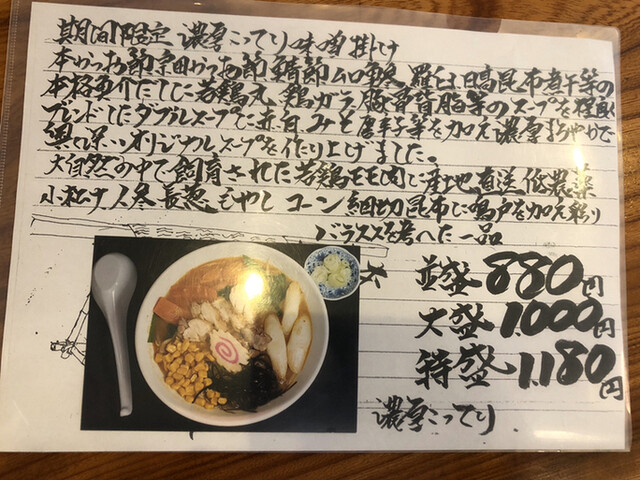 期間限定 濃厚こってり味噌掛け
本かつお節宗田かつお節鯖節ムロ節 羅臼日高昆布煮干等の
本格魚介だしに若鶏丸、鶏ガラ豚骨背脂等のスープを程良く
ブレンドしたダブルスープに赤白みそ唐辛子等を加え濃厚まろやかで
奥深いオリジナルスープを作り上げました。
大自然の中で飼育された若鶏モモ肉に産地直送低農薬
小松菜人参長葱もやしコーン細切昆布に鳴戸を加え彩り
バランスを考へた一品
並盛 880円
大盛 1.000円
特盛 1.180円
濃厚こってり